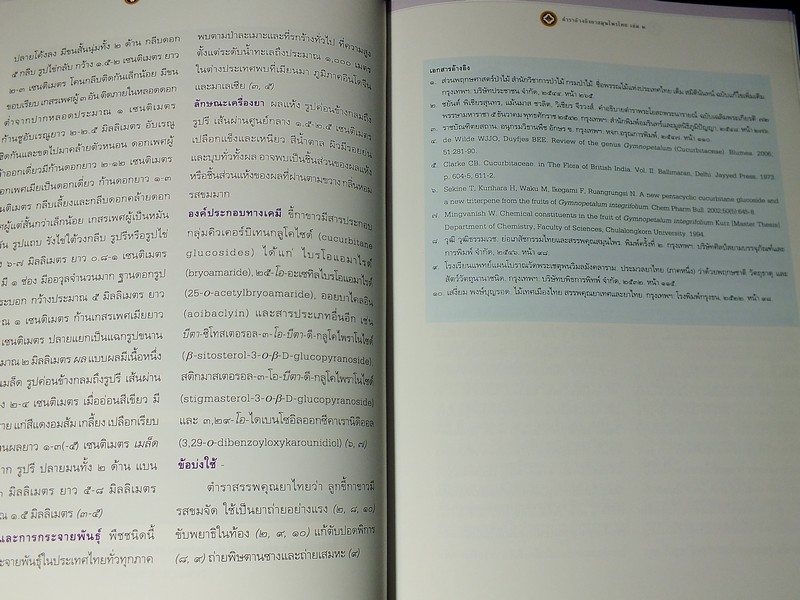 ปลายโค้งลง มีขนสั้นนุ่มทั้ง ๒ ด้าน กลีบดอก
๕ กลีบ รูปไข่กลับ กว้าง ๑.๕-๒ เซนติเมตร ยาว
๒-๓ เซนติเมตร โคนกลีบติดกันเล็กน้อย มีขน
ขอบเรียบ เกสรเพศผู้ ๓ อัน ติดภายในหลอดดอก
ต่ำจากปากหลอดประมาณ ๑ เซนติเมตร
ก้านชูอับเรณูยาว ๒-๒.๕ มิลลิเมตร อับเรณู
ติดกันและขดไปมาคล้ายตัวหนอน ดอกเพศ
ออกเดี่ยวมีก้านดอกยาว ๒-๑๒ เซนติเมตร
ดอกเพศเมียเป็นดอกเดี่ยว ก้านดอกยาว ๑-๓
เซนติเมตร กลีบเลี้ยงและกลีบดอกคล้ายดอก
แต่สั้นกว่าเล็กน้อย เกสรเพศผู้เป็นหมัน
รูปแถบ รังไข่ใต้วงกลีบ รูปรีหรือรูปไข่
๖-๗ มิลลิเมตร ยาว ๐.๘-๑ เซนติเมตร
มี ๑ ช่อง มีออวุลจำนวนมาก ฐานดอกรูป
กระบอก กว้างประมาณ ๕ มิลลิเมตร ยาว
๑ เซนติเมตร ก้านเกสรเพศเมียยาว
เซนติเมตร ปลายแยกเป็นแฉกรูปขนาน
ประมาณ ๒ มิลลิเมตร ผล แบบผลมีเนื้อหนึ่ง
เมล็ด รูปค่อนข้างกลมถึงรูปรี เส้นผ่าน
๒-๔ เซนติเมตร เมื่ออ่อนสีเขียว มี
แก่สีแดงอมส้ม เกลี้ยง เปลือกเรียบ
ผลยาว ๑-๓(-๕) เซนติเมตร เมล็ด
รูปรี ปลายมนทั้ง ๒ ด้าน แบน
มิลลิเมตร ยาว ๕-๘ มิลลิเมตร
๑.๕ มิลลิเมตร (๓-๕)
และการกระจายพันธุ์ พืชชนิดนี้
กระจายพันธุ์ในประเทศไทยทั่วทุกภาค
พบตามป่าละเมาะและที่รกร้างทั่วไป ที่ความสูง
ตั้งแต่ระดับน้ำทะเลถึงประมาณ ๑,๐๐๐ เมตร
ในต่างประเทศพบที่เมียนมา ภูมิภาคอินโดจีน
และมาเลเซีย (๓, ๕)
ลักษณะเครื่องยา ผลแห้ง รูปค่อนข้างกลมถึง
รูปรี เส้นผ่านศูนย์กลาง ๑.๕-๒.๕ เซนติเมตร
เปลือกแข็งและเหนียว สีน้ำตาล ผิวมีรอยย่น
และบุบทั่วทั้งผล อาจพบเป็นชิ้นส่วนของผลแห้ง
หรือชิ้นส่วนแห้งของผลที่ผ่านตามขวาง กลิ่นหอม
รสขมมาก
องค์ประกอบทางเคมี ขี้กาขาวมีสารประกอบ
กลุ่มคิวเคอร์บิเทนกลูโคไซด์ (cucurbitane
glucosides) ได้แก่ ไบรโอแอมาไรด์
(bryoamaride), ๒๕-โอ-อะเซทิลไบรโอแอมาไรด์
(25-o-acetylbryoamaride), ออยบาไคลอิน
(aoibaclyin) และสารประเภทอื่นอีก เช่น
บีตา-ซิโทสเตอรอล-๓-โอ-บีตา-ดี-กลูโคไพราโนไซด์
(β-sitosterol-3-o-β-D-glucopyranoside),
สติกมาสเตอรอล-๓-โอ-บีตา-ดี-กลูโคไพราโนไซด์
(stigmasterol-3-o-β-D-glucopyranoside)
และ ๓,๒๙-โอ-ไดเบนโซอิลออกซีคาเรานิดิออล
(3,29-o-dibenzoyloxykarounidiol) (๖, ๗)
ข้อบ่งใช้ -
ตำราสรรพคุณยาไทยว่า ลูกขี้กาขาวมี
รสขมจัด ใช้เป็นยาถ่ายอย่างแรง (๒, ๘, ๑๐)
ขับพยาธิในท้อง (๒, ๙, ๑๐) แก้ตับปอดพิการ
(๘, ๙) ถ่ายพิษตานซางและถ่ายเสมหะ (๙)
ตำราอ้างอิงยาสมุนไพรไทย เล่ม ๒
เอกสารอ้างอิง
๑. ส่วนพฤกษศาสตร์ป่าไม้ สำนักวิชาการป่าไม้ กรมป่าไม้. ชื่อพรรณไม้แห่งประเทศไทย เต็ม สมิตินันทน์ ฉบับแก้ไขเพิ่มเติม.
กรุงเทพฯ: บริษัทประชาชน จำกัด, ๒๕๔๔. หน้า ๒๖๕.
๒. ชยันต์ พิเชียรสุนทร, แม้นมาส ชวลิต, วิเชียร จีรวงส์. คำอธิบายตำราพระโอสถพระนารายณ์ ฉบับเฉลิมพระเกียรติ ๗๒
พรรษามหาราชา ๕ ธันวาคม พุทธศักราช ๒๕๔๒. กรุงเทพฯ: สำนักพิมพ์อมรินทร์และมูลนิธิภูมิปัญญา, ๒๕๔๔.
๓. ราชบัณฑิตยสถาน. อนุกรมวิธานพืช อักษร ข. กรุงเทพฯ: หจก.อรุณการพิมพ์, ๒๕๔๗.
๔. de Wilde WJJO, Duyfjes BEE. Review of the genus Gymnopetalum (Cucurbitaceae). Blumea. 2006;
51:281-90.
๕. Clarke CB. Cucurbitaceae. in The Flora of British India. Vol. II. Ballimaran, Delhi: Jayyed Press, 1973.
p. 604-5, 611-2.
๖. Sekine T, Kurihara H, Waku M, Ikegami F, Ruangrungsi N. A new pentacyclic cucurbitane glucoside and
a new triterpene from the fruits of Gymnopetalum integrifolium. Chem Pharm Bull. 2002;50(5):645-8.
๗. Mingvanish W. Chemical constituents in the fruit of Gymnopetalum integrifolium Kurz [Master Thesis].
Department of Chemistry, Faculty of Sciences, Chulalongkorn University. 1994.
๘. วุฒิ วุฒิธรรมเวช. ย่อเภสัชกรรมไทยและสรรพคุณสมุนไพร. พิมพ์ครั้งที่ ๒. กรุงเทพฯ: บริษัทศิลป์สยามบรรจุภัณฑ์และ
การพิมพ์ จำกัด, ๒๕๔๖. หน้า ๙๘.
๙. โรงเรียนแพทย์แผนโบราณวัดพระเชตุพนวิมลมังคลาราม. ประมวลยาไทย (ภาคหนึ่ง) ว่าด้วยพฤกษชาติ วัตถุธาตุ และ
สัตว์วัตถุนานาชนิด. กรุงเทพฯ: บริษัทบพิธการพิมพ์ จำกัด, ๒๕๓๒. หน้า ๑๑๕.
๑๐. เสงี่ยม พงษ์บุญรอด. ไม้เทศเมืองไทย สรรพคุณยาเทศและยาไทย. กรุงเทพฯ: โรงพิมพ์กรุงธน, ๒๕๒๒. หน้า ๙๘